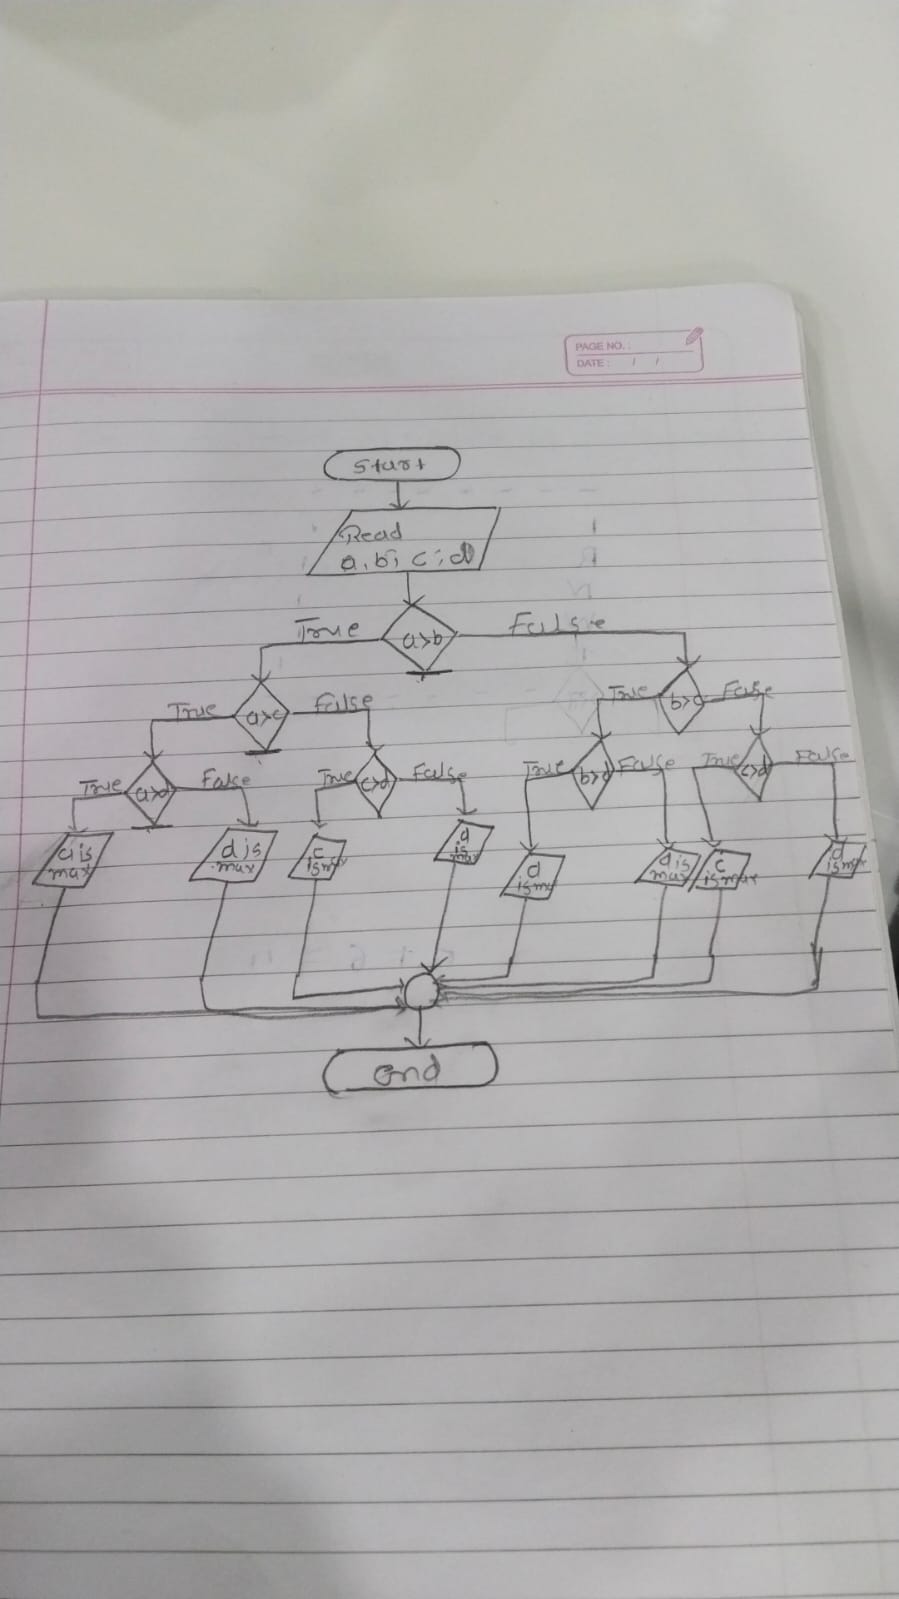 PAGE NO. :
DATE : / /
Start
Read
a, b, c, d
True
a>b
False
True
a>c
False
True
b>c
False
True
a>d
False
True
c>d
False
True
b>d
False
True
c>d
False
a is
max
d is
max
c
is max
d
is
max
d
is mx
d is
max
c
is max
d
is mx
end